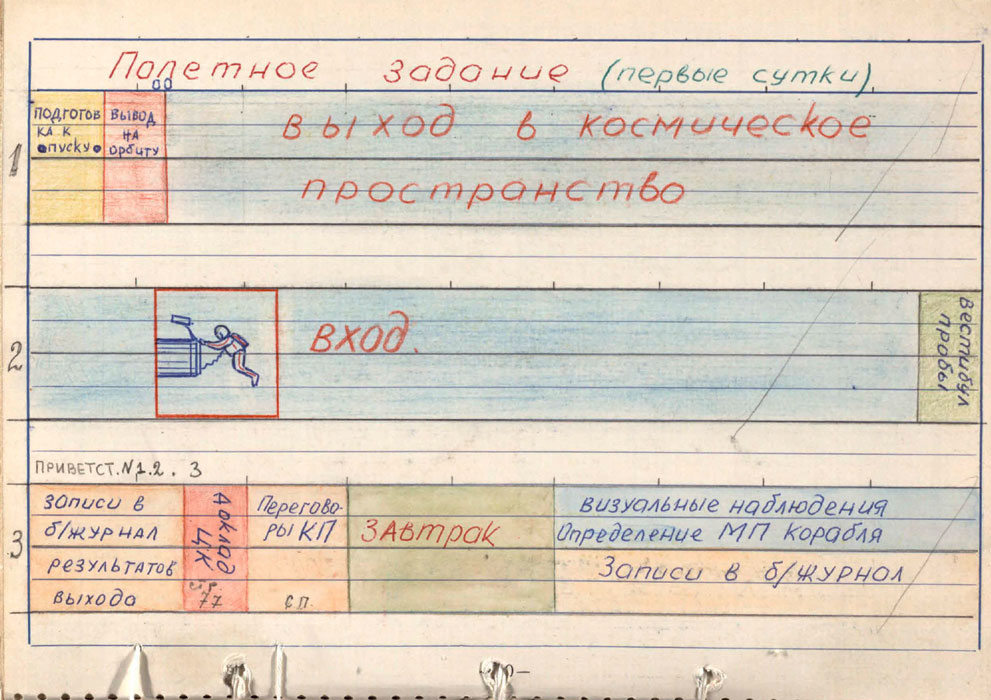 Полетное задание (первые сутки)
00
1
ПОДГОТОВ
КА К
ПУСКУ
ВЫВОД
НА
орбиту
выход в космическое
пространство
2
ВХОД.
Вестибул
пробы
ПРИВЕТСТ. N 1. 2. 3
3
записи в
б/ЖУРНАЛ
результатов
выхода
доклад
ЦК
стр
77
Перегово-
РЫ КП
СП.
ЗАВтрак
визуальные наблюдения
Определение МП Корабля
Записи в б/ЖУРНАЛ